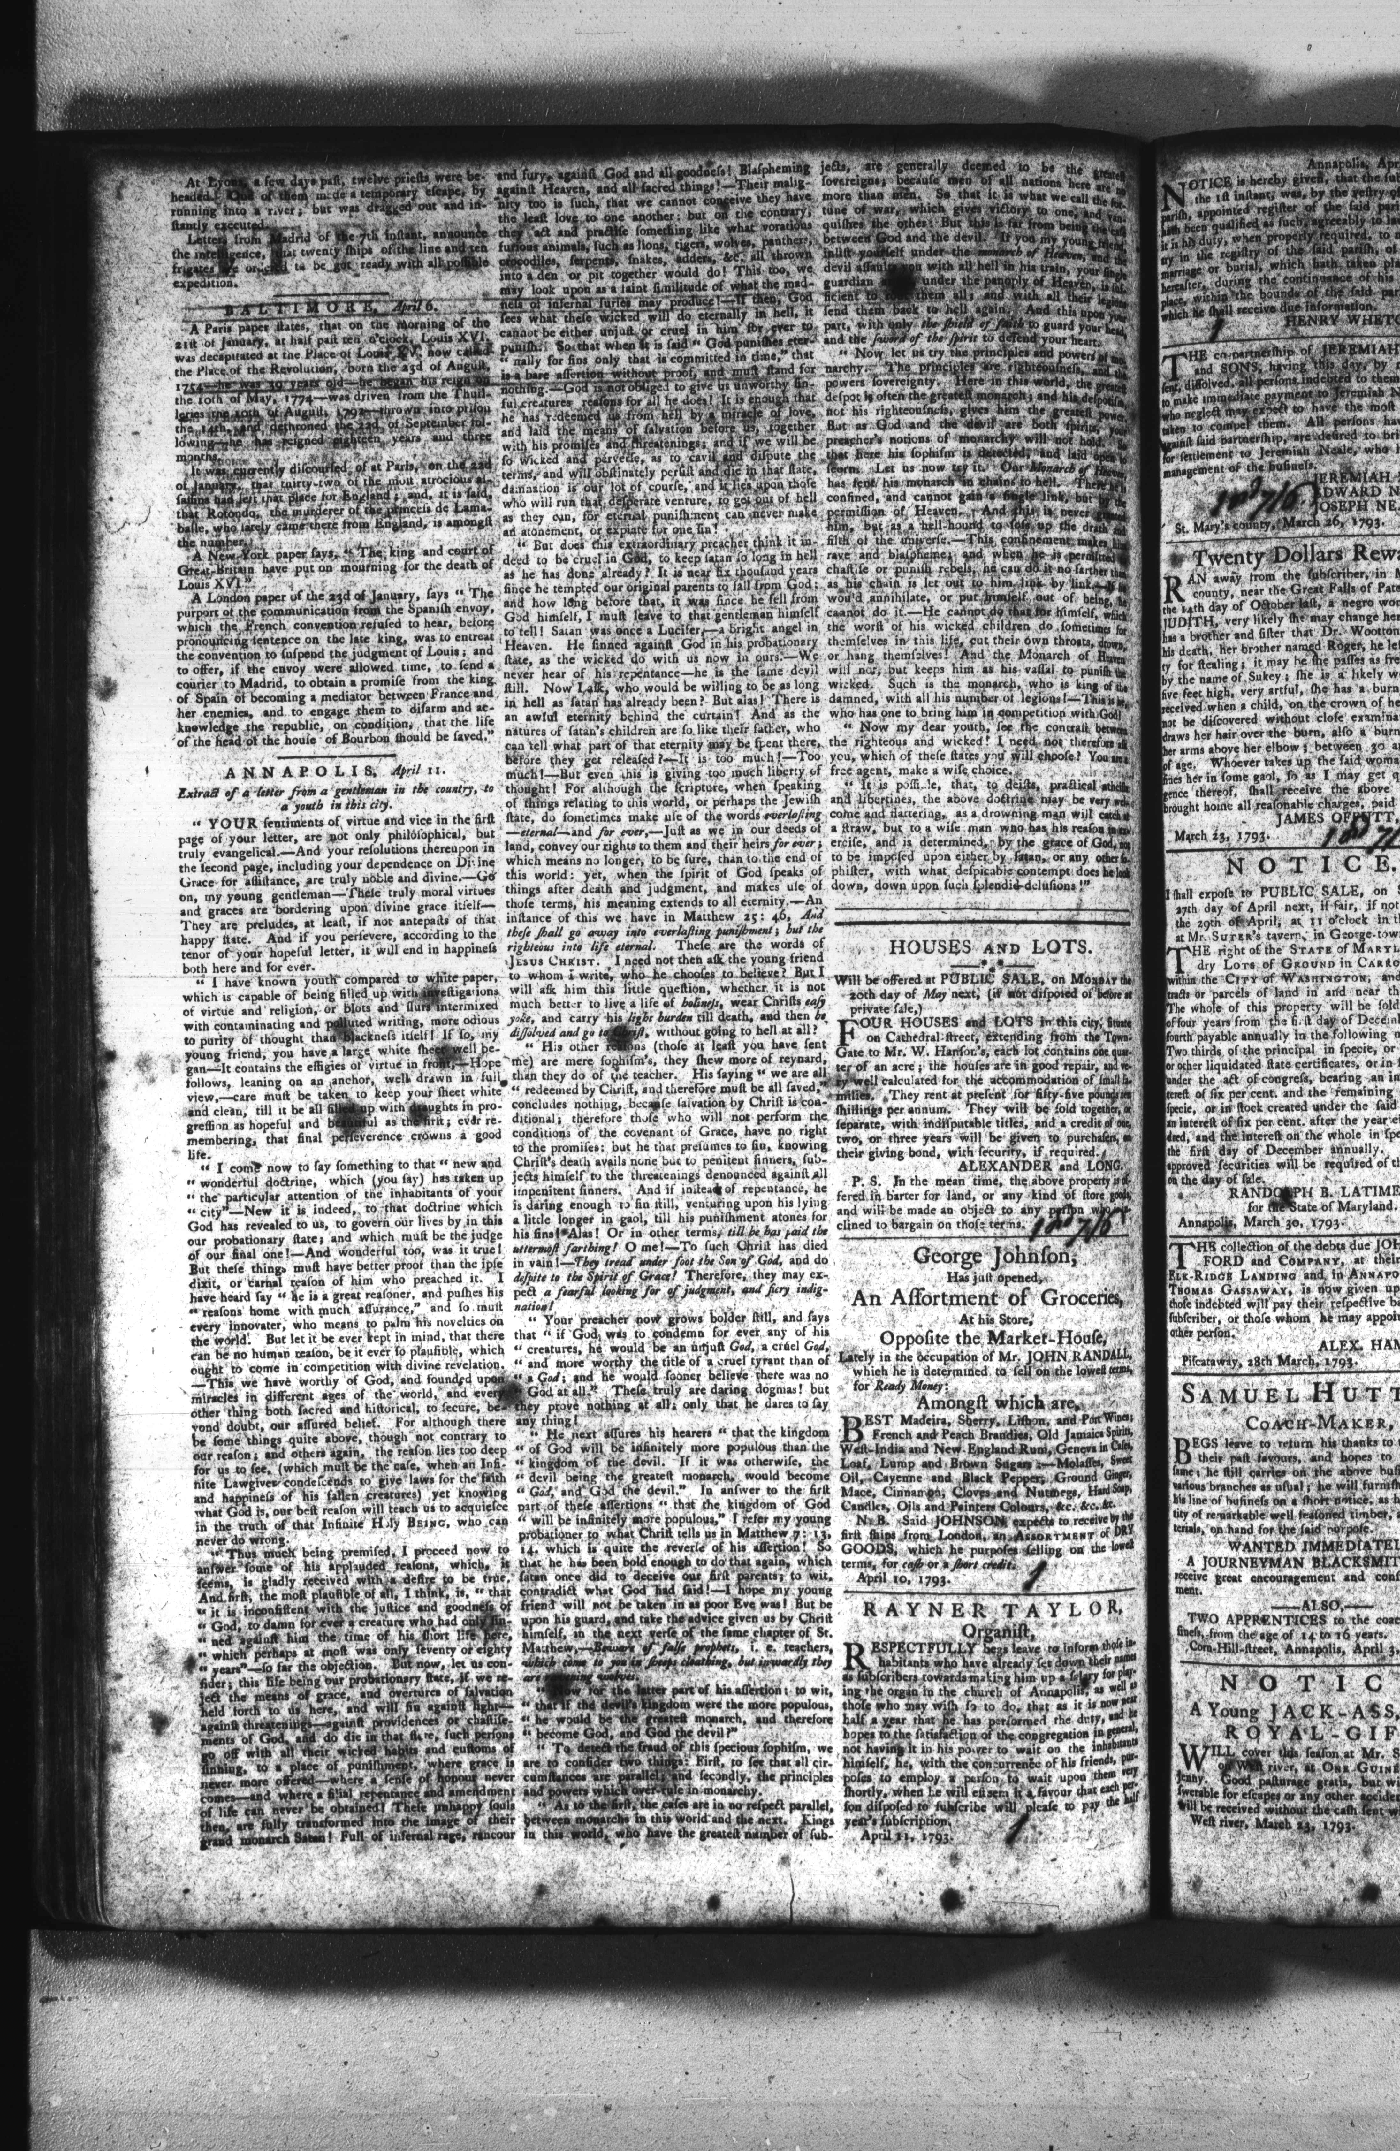 At Lyons, a few days past, twelve priests were be-
headed. One of them made a temporary escape, by
running into a river; but was dragged out and in-
stantly executed.
Letters from Madrid of the 7th instant, announce
the intelligence, that twenty ships of the line and ten
frigates are ordered to be got ready with all possible
expedition.
BALTIMORE, April 6.
A Paris paper states, that on the morning of the
21st of January, at half past ten o'clock, Louis XVI.
was decapitated at the Place of Louis XV, now called
the Place of the Revolution, born the 23d of August,
1754—he was 39 years old—he began his reign on
the 10th of May, 1774—was driven from the Thuil-
leries the 10th of August, 1792—thrown into prison
the 14th, and dethroned the 22d of September fol-
lowing—he has reigned eighteen years and three
months.
It was currently discoursed of at Paris, on the 22d
of January, that thirty-two of the most atrocious as-
sassins had left that place for England; and, it is said,
that Rotondo, the murderer of the princess de Lama-
balle, who lately came there from England, is amongst
the number.
A New-York paper says, "The king and court of
Great-Britain have put on mourning for the death of
Louis XVI."
A London paper of the 23d of January, says "The
purport of the communication from the Spanish envoy,
which the French convention refused to hear, before
pronouncing sentence on the late king, was to entreat
the convention to suspend the judgment of Louis; and
to offer, if the envoy were allowed time, to send a
courier to Madrid, to obtain a promise from the king
of Spain of becoming a mediator between France and
her enemies, and to engage them to disarm and ac-
knowledge the republic, on condition, that the life
of the head of the house of Bourbon should be saved."
ANNAPOLIS, April 11.
Extract of a letter from a gentleman in the country, to
a youth in this city.
"YOUR sentiments of virtue and vice in the first
page of your letter, are not only philosophical, but
truly evangelical.—And your resolutions thereupon in
the second page, including your dependence on Divine
Grace for assistance, are truly noble and divine.—Go
on, my young gentleman—These truly moral virtues
and graces are bordering upon divine grace itself—
They are preludes, at least, if not antepasts of that
happy state. And if you persevere, according to the
tenor of your hopeful letter, it will end in happiness
both here and for ever.
"I have known youth compared to white paper,
which is capable of being filled up with investigations
of virtue and religion, or blots and slurs intermixed
with contaminating and polluted writing, more odious
to purity of thought than blackness itself! If so, my
young friend, you have a large white sheet well be-
gan—It contains the effigies of virtue in front,—Hope
follows, leaning on an anchor, well drawn in full
view,—care must be taken to keep your sheet white
and clean, till it be all filled up with draughts in pro-
gression as hopeful and beautiful as the first; ever re-
membering, that final perseverence crowns a good
life.
"I come now to say something to that "new and
"wonderful doctrine, which (you say) has taken up
"the particular attention of the inhabitants of your
"city"—New it is indeed, to that doctrine which
God has revealed to us, to govern our lives by in this
our probationary state; and which must be the judge
of our final one!—And wonderful too, was it true!
But these things must have better proof than the ipse
dixit, or carnal reason of him who preached it. I
have heard say "he is a great reasoner, and pushes his
"reasons home with much assurance," and so must
every innovater, who means to palm his novelties on
the world. But let it be ever kept in mind, that there
can be no human reason, be it ever so plausible, which
ought to come in competition with divine revelation.
—This we have worthy of God, and founded upon
miracles in different ages of the world, and every
other thing both sacred and historical, to secure, be-
yond doubt, our assured belief. For although there
be some things quite above, though not contrary to
our reason; and others again, the reason lies too deep
for us to see, (which must be the case, when an Infi-
nite Lawgiver condescends to give laws for the faith
and happiness of his fallen creatures) yet knowing
what God is, our best reason will teach us to acquiesce
in the truth of that Infinite Holy BEING, who can
never do wrong.
"Thus much being premised, I proceed now to
answer some of his applauded reasons, which, it
seems, is gladly received with a desire to be true.
And first, the most plausible of all, I think, is, "that
"it is inconsistent with the justice and goodness of
"God, to damn for ever a creature who had only sin-
"ned against him the time of his short life here,
"which perhaps at most was only seventy or eighty
"years"—so far the objection. But now, let us con-
sider; this life being our probationary state, if we re-
ject the means of grace, and overtures of salvation
held forth to us here, and will sin against light—
against threatenings—against providences or chastise-
ments of God, and do die in that state, such persons
go off with all their wicked habits and customs of
sinning, to a place of punishment, where grace is
never more offered—where a sense of honour never
comes—and where a filial repentance and amendment
of life can never be obtained! These unhappy souls
then, are fully transformed into the image of their
grand monarch Satan! Full of infernal rage, rancour
and fury, against God and all goodness! Blaspheming
against Heaven, and all sacred things!—Their malig-
nity too is such, that we cannot conceive they have
the least love to one another: but on the contrary,
they act and practise something like what voratious
furious animals, such as lions, tigers, wolves, panthers,
crocodiles, serpents, snakes, adders, &c. all thrown
into a den or pit together would do! This too, we
may look upon as a faint similitude of what the mad-
ness of infernal furies may produce!—If then, God
sees what these wicked will do eternally in hell, it
cannot be either unjust or cruel in him for ever to
punish. So that when it is said "God punishes eter-
"nally for sins only that is committed in time," that
is a bare assertion without proof, and must stand for
nothing.—God is not obliged to give us unworthy sin-
ful creatures reasons for all he does! It is enough that
he has redeemed us from hell by a miracle of love,
and laid the means of salvation before us, together
with his promises and threatenings; and if we will be
so wicked and perverse, as to cavil and dispute the
terms, and will obstinately persist and die in that state,
damnation is our lot of course, and it lies upon those
who will run that desperate venture, to get out of hell
as they can, for eternal punishment can never make
an atonement, or expiate for one sin!
"But does this extraordinary preacher think it in-
deed to be cruel in God, to keep satan so long in hell
as he has done already? It is near six thousand years
since he tempted our original parents to fall from God;
and how long before that, it was since he fell from
God himself, I must leave to that gentleman himself
to tell! Satan was once a Lucifer,—a bright angel in
Heaven. He sinned against God in his probationary
state, as the wicked do with us now in ours.—We
never hear of his repentance—he is the same devil
still. Now I ask, who would be willing to be as long
in hell as satan has already been? But alas! There is
an awful eternity behind the curtain! And as the
natures of satan's children are so like their father, who
can tell what part of that eternity may be spent there,
before they get released?—It is too much!—Too
much!—But even this is giving too much liberty of
thought! For although the scripture, when speaking
of things relating to this world, or perhaps the Jewish
state, do sometimes make use of the words everlasting
—eternal—and for ever,—Just as we in our deeds of
land, convey our rights to them and their heirs for ever;
which means no longer, to be sure, than to the end of
this world: yet, when the spirit of God speaks of
things after death and judgment, and makes use of
those terms, his meaning extends to all eternity.—An
instance of this we have in Matthew 25: 46, And
these shall go away into everlasting punishment; but the
righteous into life eternal. These are the words of
JESUS CHRIST. I need not then ask the young friend
to whom I write, who he chooses to believe? But I
will ask him this little question, whether it is not
much better to live a life of holiness, wear Christs easy
yoke, and carry his light burden till death, and then be
dissolved and go to Christ, without going to hell at all?
"His other reasons (those at least you have sent
me) are mere sophism's, they shew more of reynard,
than they do of the teacher. His saying "we are all
"redeemed by Christ, and therefore must be all saved,"
concludes nothing, because salvation by Christ is con-
ditional; therefore those who will not perform the
conditions of the covenant of Grace, have no right
to the promises: but he that presumes to sin, knowing
Christ's death avails none but to penitent sinners, sub-
jects himself to the threatenings denounced against all
impenitent sinners. And if instead of repentance, he
is daring enough to sin still, venturing upon his lying
a little longer in gaol, till his punishment atones for
his sins! Alas! Or in other terms, till he has paid the
uttermost farthing! O me!—To such Christ has died
in vain!—They tread under foot the Son of God, and do
despite to the Spirit of Grace! Therefore, they may ex-
pect a fearful looking for of judgment, and fiery indig-
nation!
"Your preacher now grows bolder still, and says
that "if God was to condemn for ever any of his
"creatures, he would be an unjust God, a cruel God,
"and more worthy the title of a cruel tyrant than of
"a God; and he would sooner believe there was no
"God at all." These truly are daring dogmas! but
they prove nothing at all; only that he dares to say
any thing!
"He next assures his hearers "that the kingdom
"of God will be infinitely more populous than the
"kingdom of the devil. If it was otherwise, the
"devil being the greatest monarch, would become
"God, and God the devil." In answer to the first
part of these assertions "that the kingdom of God
"will be infinitely more populous," I refer my young
probationer to what Christ tells us in Matthew 7: 13,
14, which is quite the reverse of his assertion! So
that he has been bold enough to do that again, which
satan once did to deceive our first parents; to wit,
contradict what God had said!—I hope my young
friend will not be taken in as poor Eve was! But be
upon his guard, and take the advice given us by Christ
himself, in the next verse of the same chapter of St.
Matthew,—Beware of false prophets, i. e. teachers,
which come to you in sheeps cloathing, but inwardly they
are ravening wolves.
"Now for the latter part of his assertion; to wit,
"that if the devil's kingdom were the more populous,
"he would be the greatest monarch, and therefore
"become God, and God the devil?"
"To detect the fraud of this specious sophism, we
are to consider two things: First, to see that all cir-
cumstances are parallel; and secondly, the principles
and powers which over-rule in monarchy.
"As to the first, the cases are in no respect parallel,
between monarchs in this world and the next. Kings
in this world, who have the greatest number of sub-
jects, are generally deemed to be the greatest
sovereigns; because men of all nations here are no
more than men. So that it is what we call the for-
tune of war, which gives victory to one, and van-
quishes the other: But this is far from being the case
between God and the devil. If you my young friend,
inlist yourself under the monarch of Heaven, and the
devil assaults you with all hell in his train, your single
guardian under the panoply of Heaven, is suf-
ficient to rout them all; and with all their legions
send them back to hell again. And this upon your
part, with only the shield of faith to guard your head,
and the sword of the spirit to defend your heart.
"Now let us try the principles and powers of mo-
narchy. The principles are righteousness, and the
powers sovereignty. Here in this world, the greatest
despot is often the greatest monarch; and his despotism,
not his righteousness, gives him the greatest power.
But as God and the devil are both spirits, your
preacher's notions of monarchy will not hold.
that here his sophism is detected, and laid open to
scorn. Let us now try it. Our Monarch of Heaven
has sent his monarch in chains to hell. There he is
confined, and cannot gain a single link, but by the
permission of Heaven. And this is never granted
him, but as a hell-hound to sose up the death and
filth of the universe.—This confinement makes him
rave and blaspheme; and when he is permitted to
chastise or punish rebels, he can do it no farther than
as his chain is let out to him link by link.—He
wou'd annihilate, or put himself out of being, he
cannot do it.—He cannot do that for himself, which
the worst of his wicked children do sometimes for
themselves in this life, cut their own throats, drown,
or hang themselves! And the Monarch of Heaven
will not; but keeps him as his vassal to punish the
wicked. Such is the monarch, who is king of the
damned, with all his number of legions!—This is he,
who has one to bring him in competition with God!
"Now my dear youth, see the contrast between
the righteous and wicked! I need not therefore ask
you, which of these states you will choose? You are a
free agent, make a wise choice.
"It is possible, that, to deists, practical atheists
and libertines, the above doctrine may be very wel-
come and flattering, as a drowning man will catch at
a straw, but to a wise man who has his reason in ex-
ercise, and is determined, by the grace of God, not
to be imposed upon either by satan, or any other so-
phister, with what despicable contempt does he look
down, down upon such splendid-delusions!"
HOUSES AND LOTS.
Will be offered at PUBLIC SALE, on MONDAY the
20th day of May next, (if not disposed of before at
private sale,)
FOUR HOUSES and LOTS in this city, situate
on Cathedral-street, extending from the Town-
Gate to Mr. W. Hanson's, each lot contains one quar-
ter of an acre; the houses are in good repair, and ve-
ry well calculated for the accommodation of small fa-
milies. They rent at present for fifty-five pounds ten
shillings per annum. They will be sold together, or
separate, with indisputable titles, and a credit of one,
two, or three years will be given to purchasers, on
their giving bond, with security, if required.
ALEXANDER and LONG.
P. S. In the mean time, the above property is of-
fered in barter for land, or any kind of store goods,
and will be made an object to any person who is in-
clined to bargain on those terms.
George Johnson,
Has just opened,
An Assortment of Groceries,
At his Store,
Opposite the Market-House,
Lately in the occupation of Mr. JOHN RANDALL,
which he is determined to sell on the lowest terms,
for Ready Money:
Amongst which are,
BEST Madeira, Sherry, Lisbon, and Port Wines;
French and Peach Brandies, Old Jamaica Spirits,
West-India and New-England Rum, Geneva in Cases,
Loaf, Lump and Brown Sugars;—Molasses, Sweet
Oil, Cayenne and Black Pepper, Ground Ginger,
Mace, Cinnamon, Cloves and Nutmegs, Hard Soap,
Candles, Oils and Painters Colours, &c. &c. &c.
N. B. Said JOHNSON expects to receive by the
first ships from London, an ASSORTMENT of DRY
GOODS, which he purposes selling on the lowest
terms, for cash or a short credit.
April 10, 1793.
RAYNER TAYLOR,
Organist,
RESPECTFULLY begs leave to inform those in-
habitants who have already set down their names
as subscribers towards making him up a salary for play-
ing the organ in the church of Annapolis, as well as
those who may wish so to do, that as it is now near
half a year that he has performed the duty, and he
hopes to the satisfaction of the congregation in general,
not having it in his power to wait on the inhabitants
himself, he, with the concurrence of his friends, pur-
poses to employ a person to wait upon them very
shortly, when he will esteem it a favour that each per-
son disposed to subscribe will please to pay the half
year's subscription.
April 11, 1793.
Annapolis, Apr
NOTICE is hereby given, that the sub
the 1st instant, was, by the vestry of
parish, appointed register of the said pari
hath been qualified as such, agreeably to la
it is his duty, when properly required, to m
try in the registry of the said parish, of
marriage or burial, which hath taken pla
hereafter, during the continuance of his
place, within the bounds of the said par
which he shall receive due information.
HENRY WHETC
THE co-partnership of JEREMIAH
and SONS, having this day, by
sent, dissolved, all persons indebted to them
to make immediate payment to Jeremiah N
who neglect may expect to have the most
taken to compel them. All persons hav
against said partnership, are desired to bri
for settlement to Jeremiah Neale, who
management of the business.
JEREMIAH
EDWARD N
JOSEPH NE
St. Mary's county, March 26, 1793.
Twenty Dollars Rewa
RAN away from the subscriber, in M
county, near the Great Falls of Pato
the 14th day of October last, a negro wo
JUDITH, very likely she may change her
has a brother and sister that Dr. Wootton
his death, her brother named Roger, he le
ty for stealing; it may be she passes as fre
by the name of Sukey; she is a likely w
five feet high, very artful, she has a burn
received when a child, on the crown of he
not be discovered without close examina
draws her hair over the burn, also a burn
her arms above her elbow; between 30
of age. Whoever takes up the said woma
fines her in some gaol, so as I may get
gence thereof, shall receive the above
brought home all reasonable charges, paid
JAMES OFFUTT,
March 23, 1793.
NOTICE.
I shall expose to PUBLIC SALE, on
27th day of April next, if fair, if not
the 29th of April, at 11 o'clock in t
at Mr. SUTER's tavern, in George-tow
THE right of the STATE of MARYL
dry LOTS of GROUND in CARRO
within the CITY of WASHINGTON, and
tracts or parcels of land in and near th
The whole of this property will be sold
of four years from the first day of Decem
fourth payable annually in the following
Two thirds of the principal in specie, or
or other liquidated state certificates, or in
under the act of congress, bearing an in
terest of six per cent. and the remaining
specie, or in stock created under the said
an interest of six per cent. after the year
dred, and the interest on the whole in spe
the first day of December annually.
approved securities will be required of th
on the day of sale.
RANDOLPH B. LATIME
for the State of Maryland.
Annapolis, March 30, 1793.
THE collection of the debts due JOH
FORD and COMPANY, at their
ELK-RIDGE LANDING and in ANNAPO
THOMAS GASSAWAY, is now given up
those indebted will pay their respective b
subscriber, or those whom he may appoin
other person.
ALEX. HAM
Piscataway, 28th March, 1793.
SAMUEL HUTT
COACH-MAKER,
BEGS leave to return his thanks to
their past favours, and hopes to
same; he still carries on the above bus
various branches as usual; he will furnish
his line of business on a short notice, as
tity of remarkable well seasoned timber,
terials, on hand for the said purpose.
WANTED IMMEDIATEL
A JOURNEYMAN BLACKSMIT
receive great encouragement and conf
ment.
—ALSO,—
TWO APPRENTICES to the coac
siness, from the age of 14 to 16 years.
Corn-Hill-street, Annapolis, April 3,
NOTIC
A Young JACK-ASS,
ROYAL GIF
WILL cover this season at Mr. S
on West river, at ONE GUINE
Jenny. Good pasturage gratis, but w
swerable for escapes or any other acciden
will be received without the cash sent
West river, March 23, 1793.